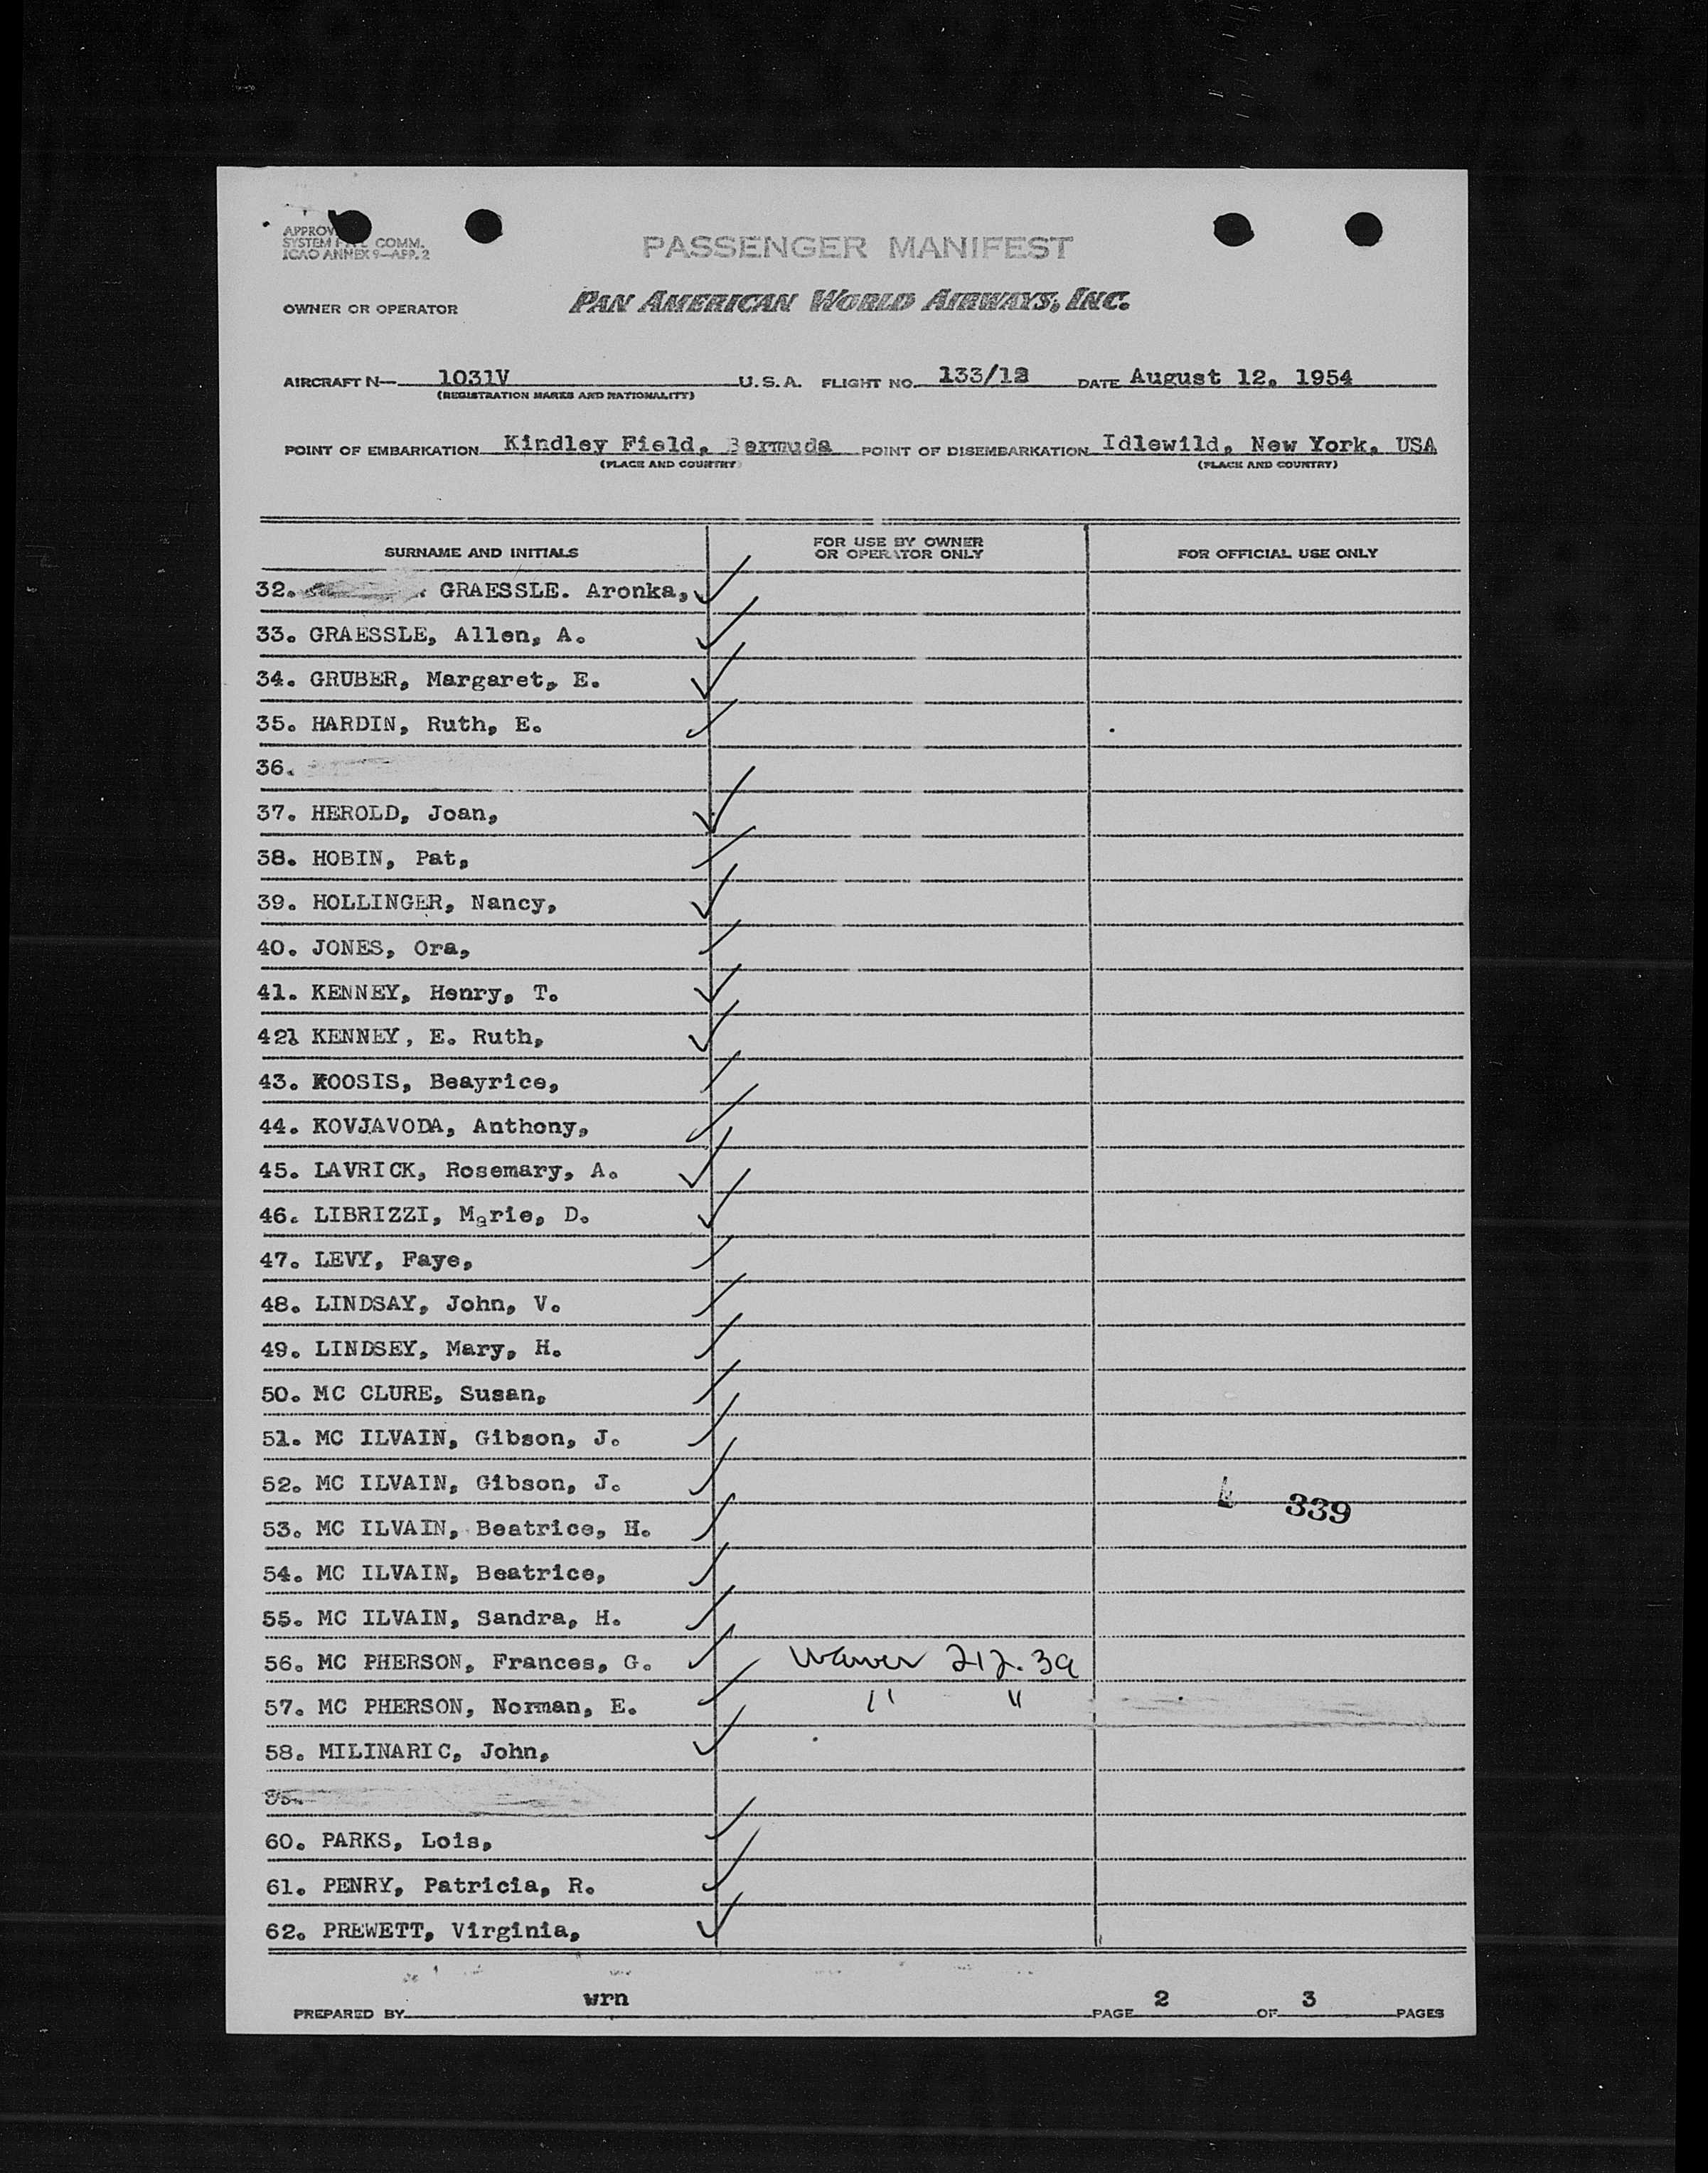 APPROV
SYSTEM F.A.L COMM.
ICAO ANNEX 9—APP. 2
PASSENGER MANIFEST
OWNER OR OPERATOR PAN AMERICAN WORLD AIRWAYS, INC.
AIRCRAFT N— 1031V U.S.A. FLIGHT NO. 133/12 DATE August 12. 1954
(REGISTRATION MARKS AND NATIONALITY)
POINT OF EMBARKATION Kindley Field, Bermuda POINT OF DISEMBARKATION Idlewild, New York, USA
(PLACE AND COUNTRY) (PLACE AND COUNTRY)
SURNAME AND INITIALS FOR USE BY OWNER OR OPERATOR ONLY FOR OFFICIAL USE ONLY
32. GRAESSLE. Aronka,
33. GRAESSLE, Allen, A.
34. GRUBER, Margaret, E.
35. HARDIN, Ruth, E.
36.
37. HEROLD, Joan,
38. HOBIN, Pat,
39. HOLLINGER, Nancy,
40. JONES, Ora,
41. KENNEY, Henry, T.
421 KENNEY, E. Ruth,
43. KOOSIS, Beayrice,
44. KOVJAVODA, Anthony,
45. LAVRICK, Rosemary, A.
46. LIBRIZZI, Marie, D.
47. LEVY, Faye,
48. LINDSAY, John, V.
49. LINDSEY, Mary, H.
50. MC CLURE, Susan,
51. MC ILVAIN, Gibson, J.
52. MC ILVAIN, Gibson, J.
339
53. MC ILVAIN, Beatrice, H.
54. MC ILVAIN, Beatrice,
55. MC ILVAIN, Sandra, H.
56. MC PHERSON, Frances, G. Waiver 212.3a
57. MC PHERSON, Norman, E. " "
58. MILINARIC, John,
60. PARKS, Lois,
61. PENRY, Patricia, R.
62. PREWETT, Virginia,
PREPARED BY wrn PAGE 2 OF 3 PAGES